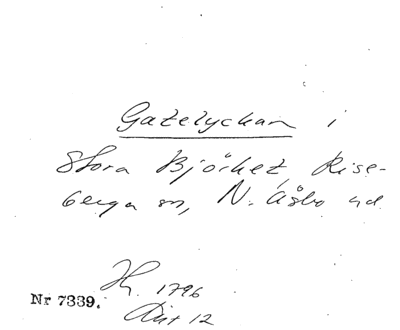 Gatelyckan i
Stora Björket, Rise-
berga sn, N. Åsbo hd
1796
Nr 7339.
Akt 12